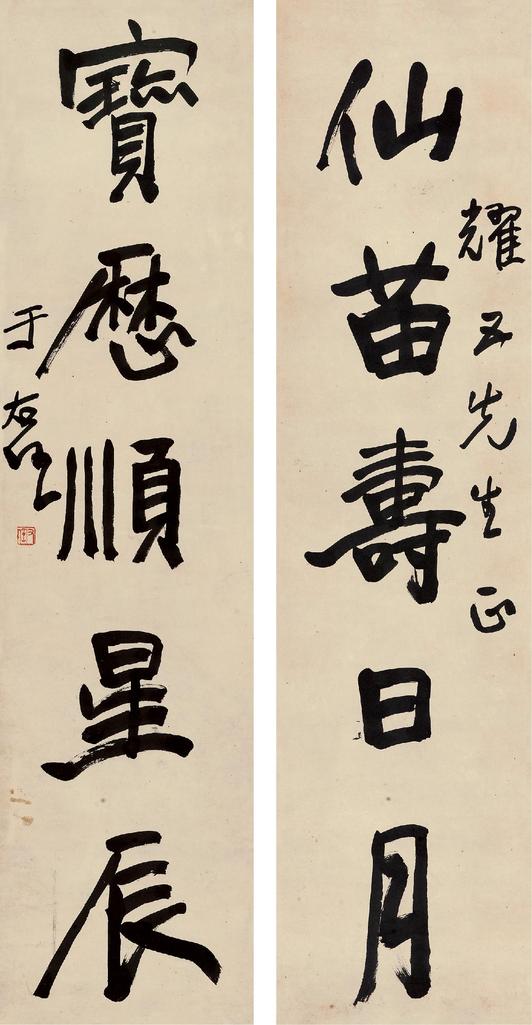 仙苗壽日月
耀五先生正
寶曆順星辰
于右任